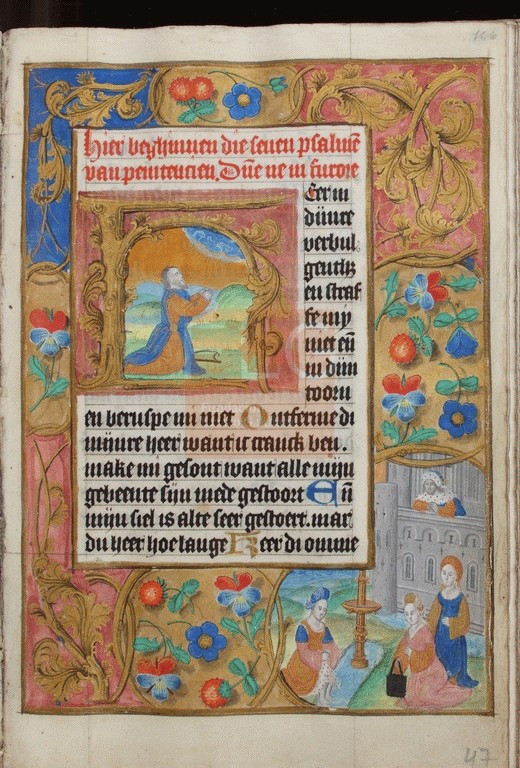 hier beghinnen die seuen psalmē
van penitencien. Dn̄e ne in furore
Eer in
dijnre
verbul
gentḥz
en straf
fe my
niet eñ
in dijn
toorn
en beruspe mi niet Ontferme di
mijnre heer want ic cranck ben.
make mi gesont want alle mijn
gebeente sijn mede gestoort Eñ
mijn siel is alte seer gestoert. mar
du heer hoe lange Keer di omme
47